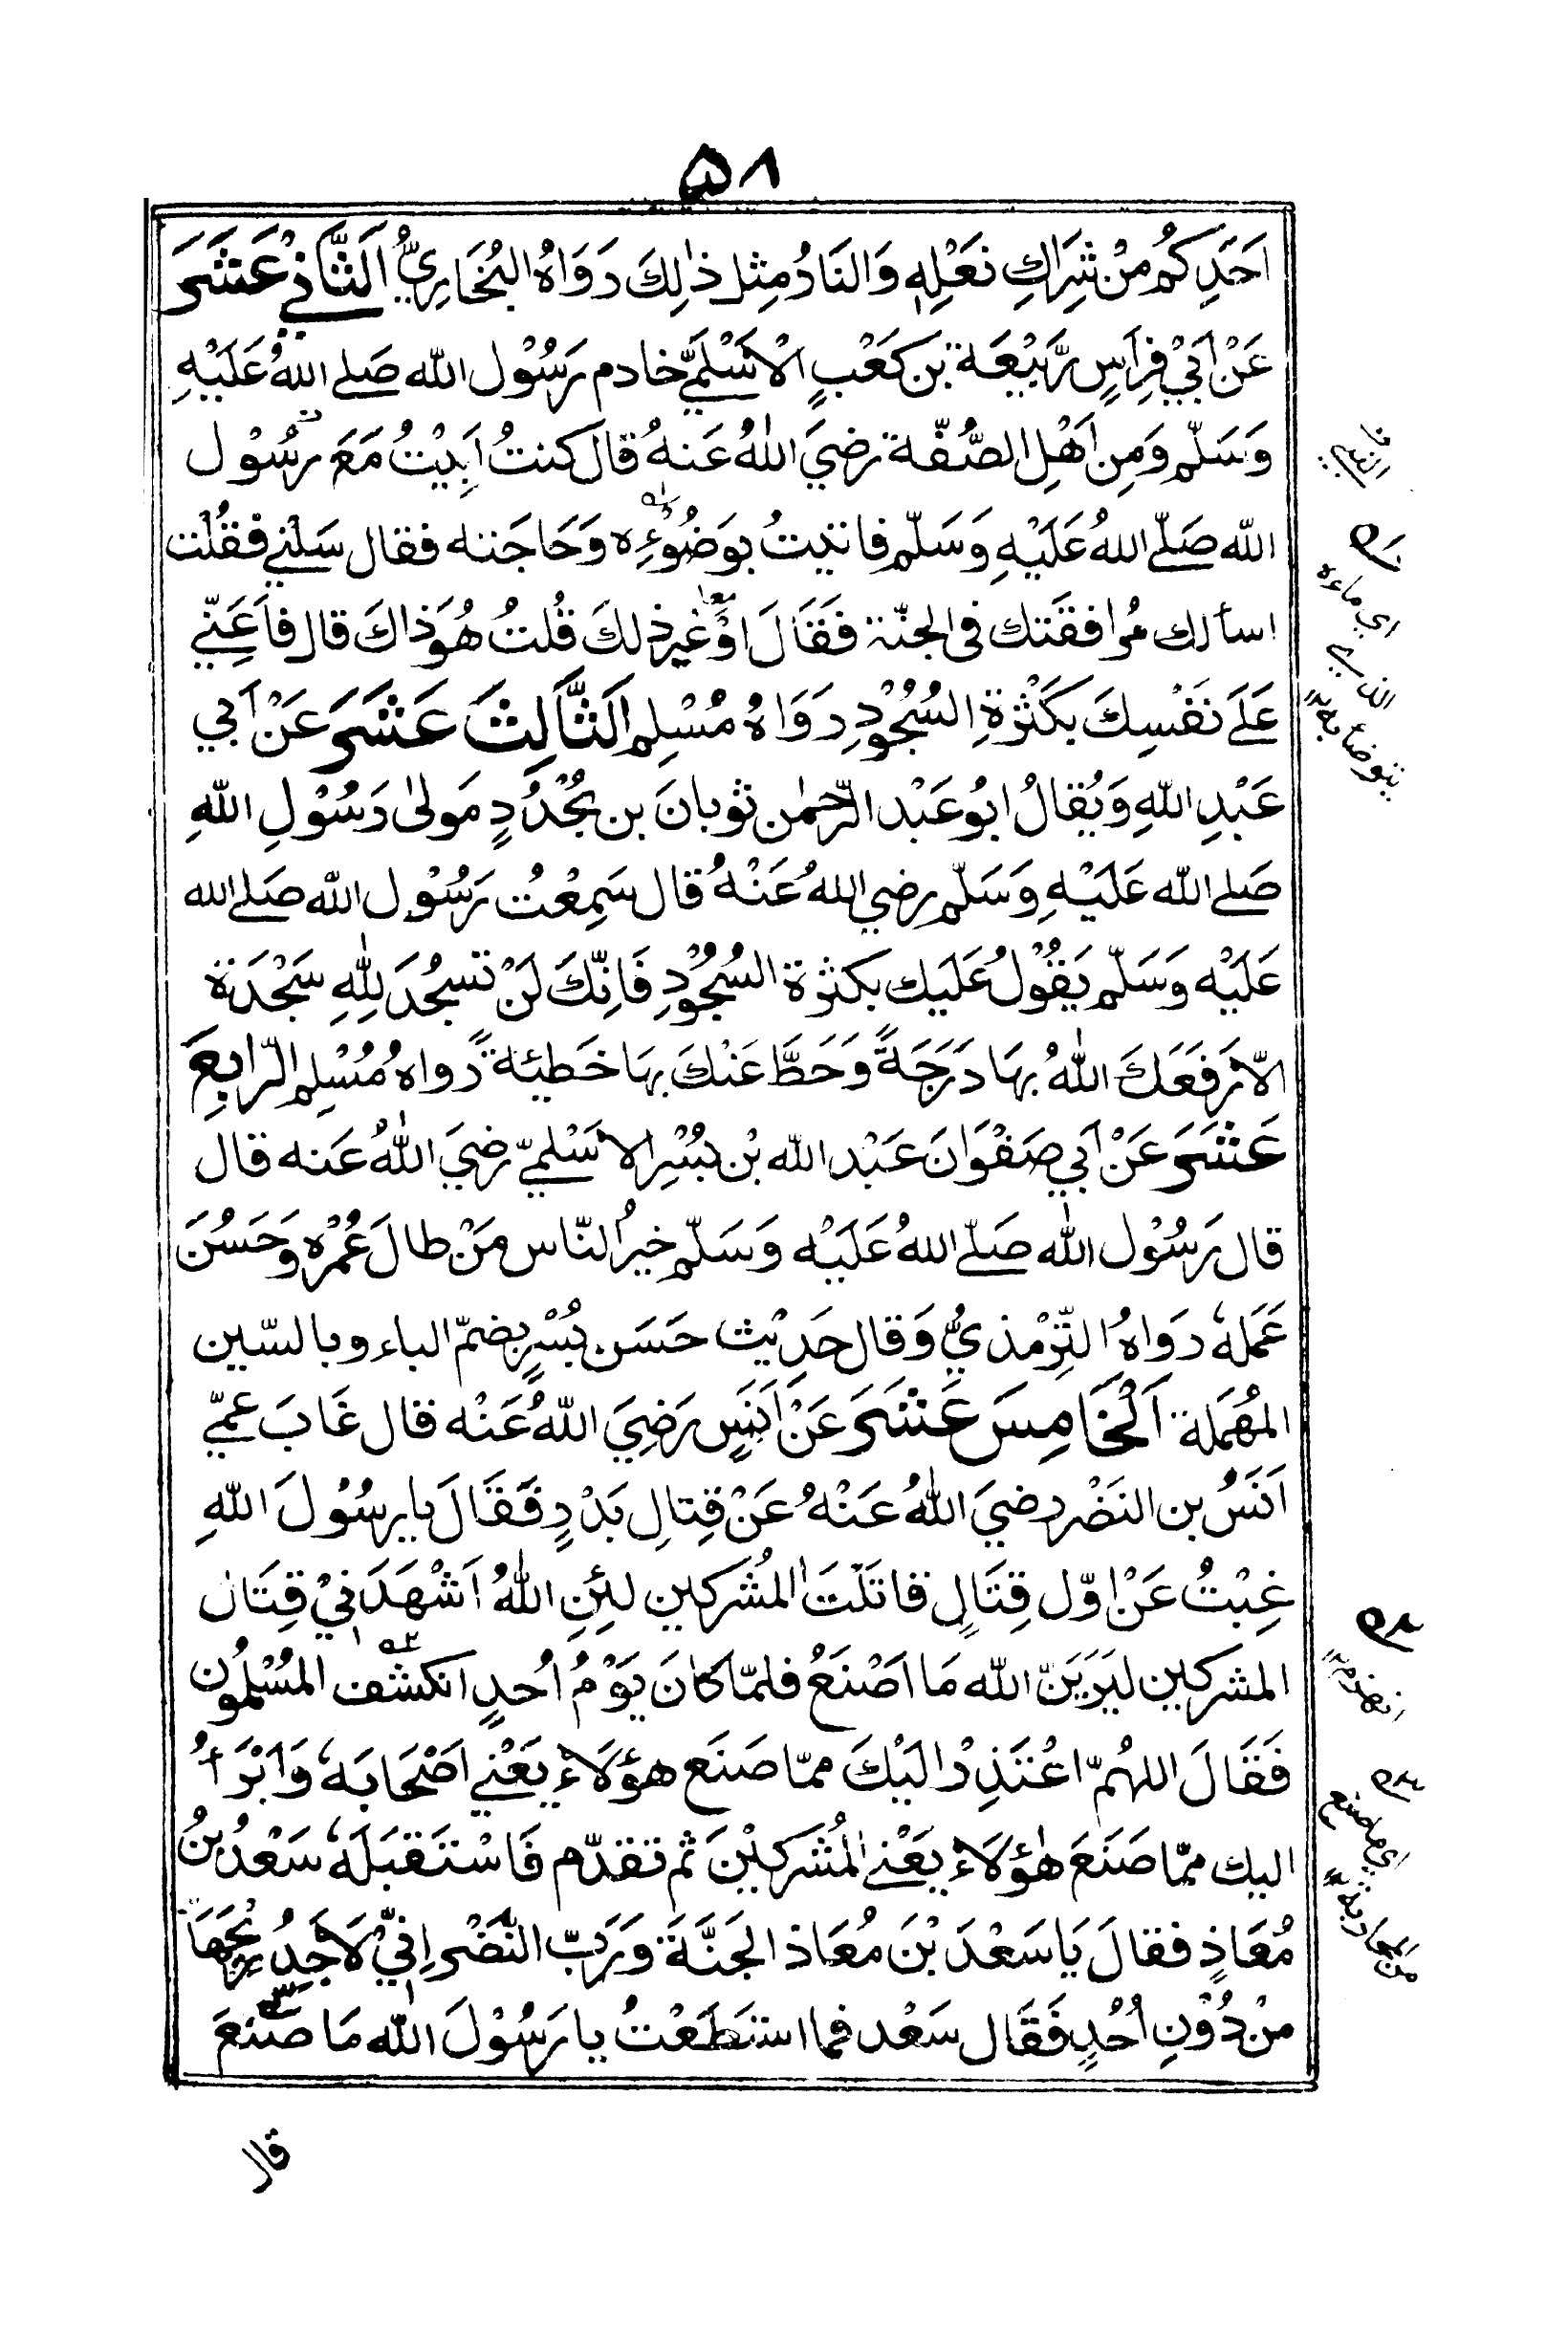 ٥٨
اَحَدِكُم مِنْ شِرَاكِ نَعْلِهٖ وَالنَارُ مِثل ذٰلِكَ رَوَاهُ البُخَارِيُّ اَلثَّانِيْ عَشَرَ
عَنْ اَبِيْ فِرَاسٍ رَّبِيْعَة بن كَعْبٍ الْاَسْلَمِيّ خادم رَسُوْل الله صَلے اللهُ عَلَيْهِ
وَسَلّم وَمِن اَهْلِ الصُّفّة رضيَ اللهُ عَنهُ قال كنتُ اَبِيْتُ مَعَ رسُوْل
الله صَلّے اللهُ عَلَيْهِ وَسَلّم فاتيتُ بوَضُوْءِه وَحَاجَته فقال سَلْنِي فقُلْت
اسألك مُرافقَتك فى الجنّة فَقَالَ اَوَغير ذلكَ قُلتُ هُوَ ذاكَ قال فاَعِنّي
عَلَے نَفْسِكَ بكَثْرةِ السُجُوْدِ رَوَاهُ مُسْلِم اَلثَّالِثَ عَشَرَ عَنْ اَبي
عَبْدِ اللهِ وَيُقالُ ابُو عَبْد الرّحمٰن ثوبانَ بن بُجْدُدٍ مَولىٰ رَسُوْلِ اللهِ
صَلے الله عَلَيْهِ وَسَلّم رضي اللهُ عَنْهُ قال سَمِعْتُ رَسُوْل الله صَلے الله
عَلَيْه وَسَلّم يَقُوْلُ عَلَيك بكثرة السُجُوْدِ فَاِنّكَ لَنْ تسجُدَ لِلّٰهِ سَجْدَة
الّا رَفَعَكَ اللهُ بهَا دَرَجَةً وَحَطَّ عَنْكَ بهَا خَطيئةً رواهُ مُسْلِم الرّابِعَ
عَشَرَ عَنْ اَبي صَفْوَانَ عَبْد الله بْن بُسْرِ الاَسْلميّ رضيَ اللهُ عَنه قال
قال رَسُوْل الله صَلّے اللهُ عَلَيْه وَسَلّم خيرُ النّاس مَنْ طالَ عُمْرُه وَحَسُنَ
عَمَلهٗ رَوَاهُ التِّرْمذيُّ وَقال حَدِيْث حَسَن بُسْرٍ بضمّ الباء وبالسّين
المُهْمَلة اَلْخَامِسَ عَشَرَ عَنْ اَنَسٍ رَضِيَ اللهُ عَنْه قال غَابَ عمّي
اَنَسُ بن النَضْر رضيَ اللهُ عَنْهُ عَنْ قِتالِ بَدْرٍ فَقَالَ يا رسُوْلَ اللهِ
غِبْتُ عَنْ اوّل قِتَالٍ قاتَلْتَ المُشركين لئِنِ اللهُ اَشْهَدَنِيْ قِتَال
المشركين ليَرَيَنّ الله مَا اَصْنَعُ فلمّا كانَ يَوْمُ اُحدٍ انكشف المُسْلمُون
فَقَالَ اللهُمّ اعْتَذِرُ اليْكَ ممّا صَنَع هؤلَاءِ يَعْنِي اَصْحَابَهٗ وَاَبْرَأُ
اليك ممّا صَنَعَ هٰؤلَاءِ يَعْنِے المُشركيْنَ ثم تقدّم فَاسْتَقبَلَهٗ سَعْدُ بنُ
مُعَاذٍ فقالَ يَا سَعْدَ بْنَ مُعَاذ الجَنَّةَ وَرَبِّ النَّضْرِ اِنِّيْ لَاَجِدُ رِيْحَهَا
مِنْ دُوْنِ اُحُدٍ فَقَال سَعْد فما استَطَعْتُ يا رَسُوْلَ الله مَا صَنَعَ
قال
اي ماءه
الذي
يتوضأ به
انهزم
اي ما صنع
من محاربة